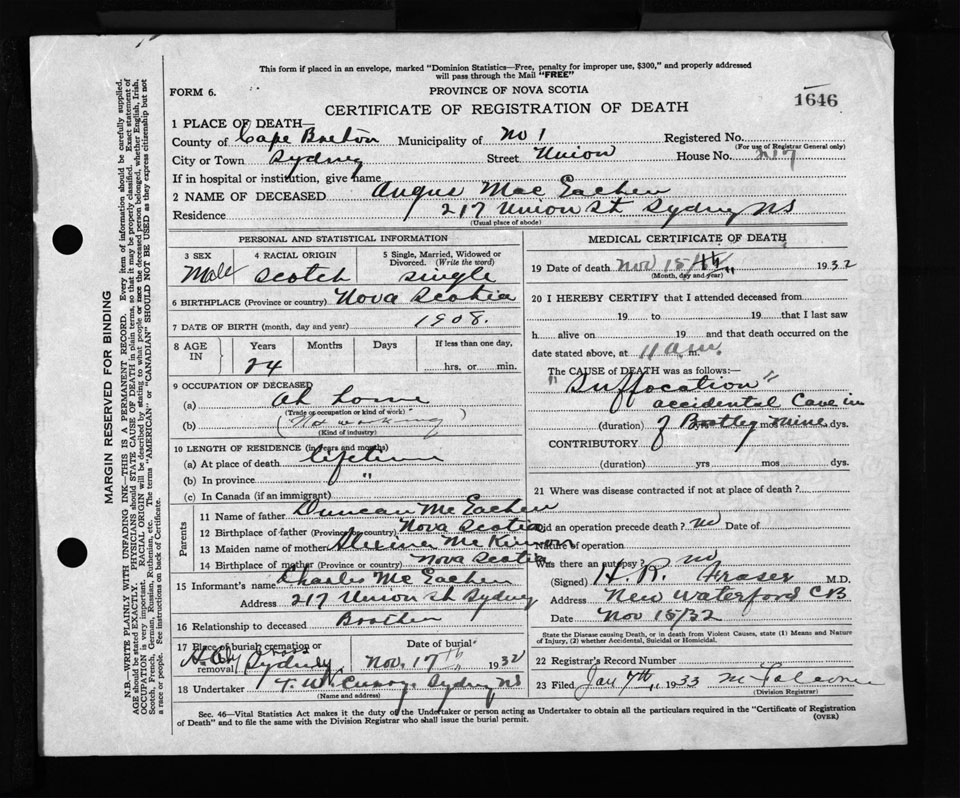 This form if placed in an envelope, marked "Dominion Statistics—Free, penalty for improper use, $300," and properly addressed
will pass through the Mail "FREE"
FORM 6.
PROVINCE OF NOVA SCOTIA
1646
CERTIFICATE OF REGISTRATION OF DEATH
1 PLACE OF DEATH—
County of Cape Breton Municipality of No 1 Registered No.
(For use of Registrar General only)
City or Town Sydney Street Union House No. 217
If in hospital or institution, give name
2 NAME OF DECEASED Angus Mac Eachen
Residence 217 Union St Sydney NS
(Usual place of abode)
PERSONAL AND STATISTICAL INFORMATION
3 SEX 4 RACIAL ORIGIN 5 Single, Married, Widowed or
Divorced. (Write the word)
Male Scotch Single
6 BIRTHPLACE (Province or country) Nova Scotia
7 DATE OF BIRTH (month, day and year) 1908.
8 AGE IN Years Months Days If less than one day,
24 hrs. or min.
9 OCCUPATION OF DECEASED
(a) At home
(Trade or occupation or kind of work)
(b) (Not working)
(Kind of industry)
10 LENGTH OF RESIDENCE (in years and months)
(a) At place of death lifetime
(b) In province "
(c) In Canada (if an immigrant)
Parents
11 Name of father Duncan Mc Eachen
12 Birthplace of father (Province or country) Nova Scotia
13 Maiden name of mother McKinnon
14 Birthplace of mother (Province or country) Nova Scotia
15 Informant's name Charles Mc Eachen
Address 217 Union St Sydney
16 Relationship to deceased Brother
17 Place of burial cremation or removal Date of burial
Holy Cross Sydney Nov 17th 1932
18 Undertaker T. W. Curry Sydney NS
(Name and address)
MEDICAL CERTIFICATE OF DEATH
19 Date of death Nov 15th 1932
(Month, day and year)
20 I HEREBY CERTIFY that I attended deceased from
19 to 19 that I last saw
h alive on 19 and that death occurred on the
date stated above, at 11 a.m.
The CAUSE of DEATH was as follows:—
"Suffocation"
accidental Cave in
(duration) of Bootleg mos mine dys.
CONTRIBUTORY
(duration) yrs mos dys.
21 Where was disease contracted if not at place of death?
Did an operation precede death? no Date of
Nature of operation
Was there an autopsy? no
(Signed) H. R. Fraser M.D.
Address New Waterford CB
Date Nov 15/32
State the Disease causing Death, or in death from Violent Causes, state (1) Means and Nature
of Injury, (2) whether Accidental, Suicidal or Homicidal.
22 Registrar's Record Number
23 Filed Jan 7th 1933
(Division Registrar)
Sec. 46—Vital Statistics Act makes it the duty of the Undertaker or person acting as Undertaker to obtain all the particulars required in the "Certificate of Registration
of Death" and to file the same with the Division Registrar who shall issue the burial permit.
(OVER)
MARGIN RESERVED FOR BINDING
N.B.—WRITE PLAINLY WITH UNFADING INK—THIS IS A PERMANENT RECORD. Every item of information should be carefully supplied.
AGE should be stated EXACTLY. PHYSICIANS should STATE CAUSE OF DEATH in plain terms, so that it may be properly classified. Exact statement of
OCCUPATION is very important. RACIAL ORIGIN will be described by stating to what people or race the deceased person belonged, whether English, Irish,
Scotch, French, German, Russian, Ruthenian, etc. The terms "AMERICAN" or "CANADIAN" SHOULD NOT BE USED as they express citizenship but not
a race or people. See instructions on back of Certificate.